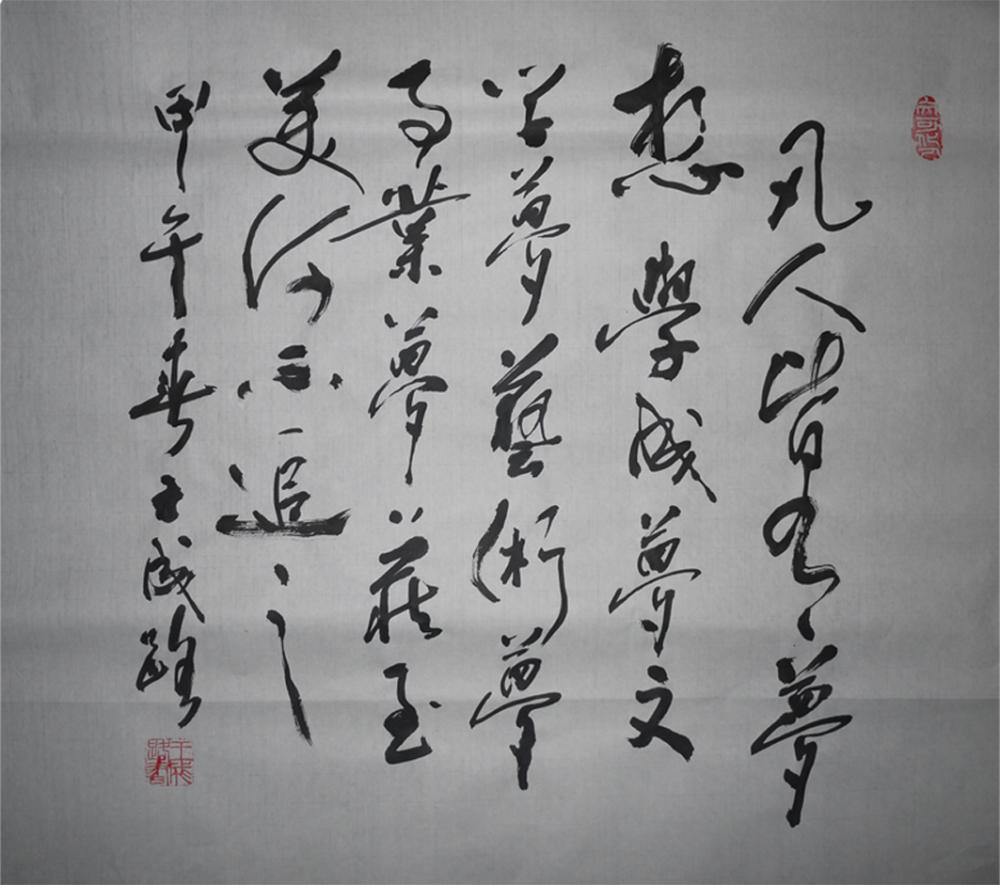 凡人皆有夢
想學成夢文
学夢藝術夢
事業夢藏至
美何不追之
甲午春王成路